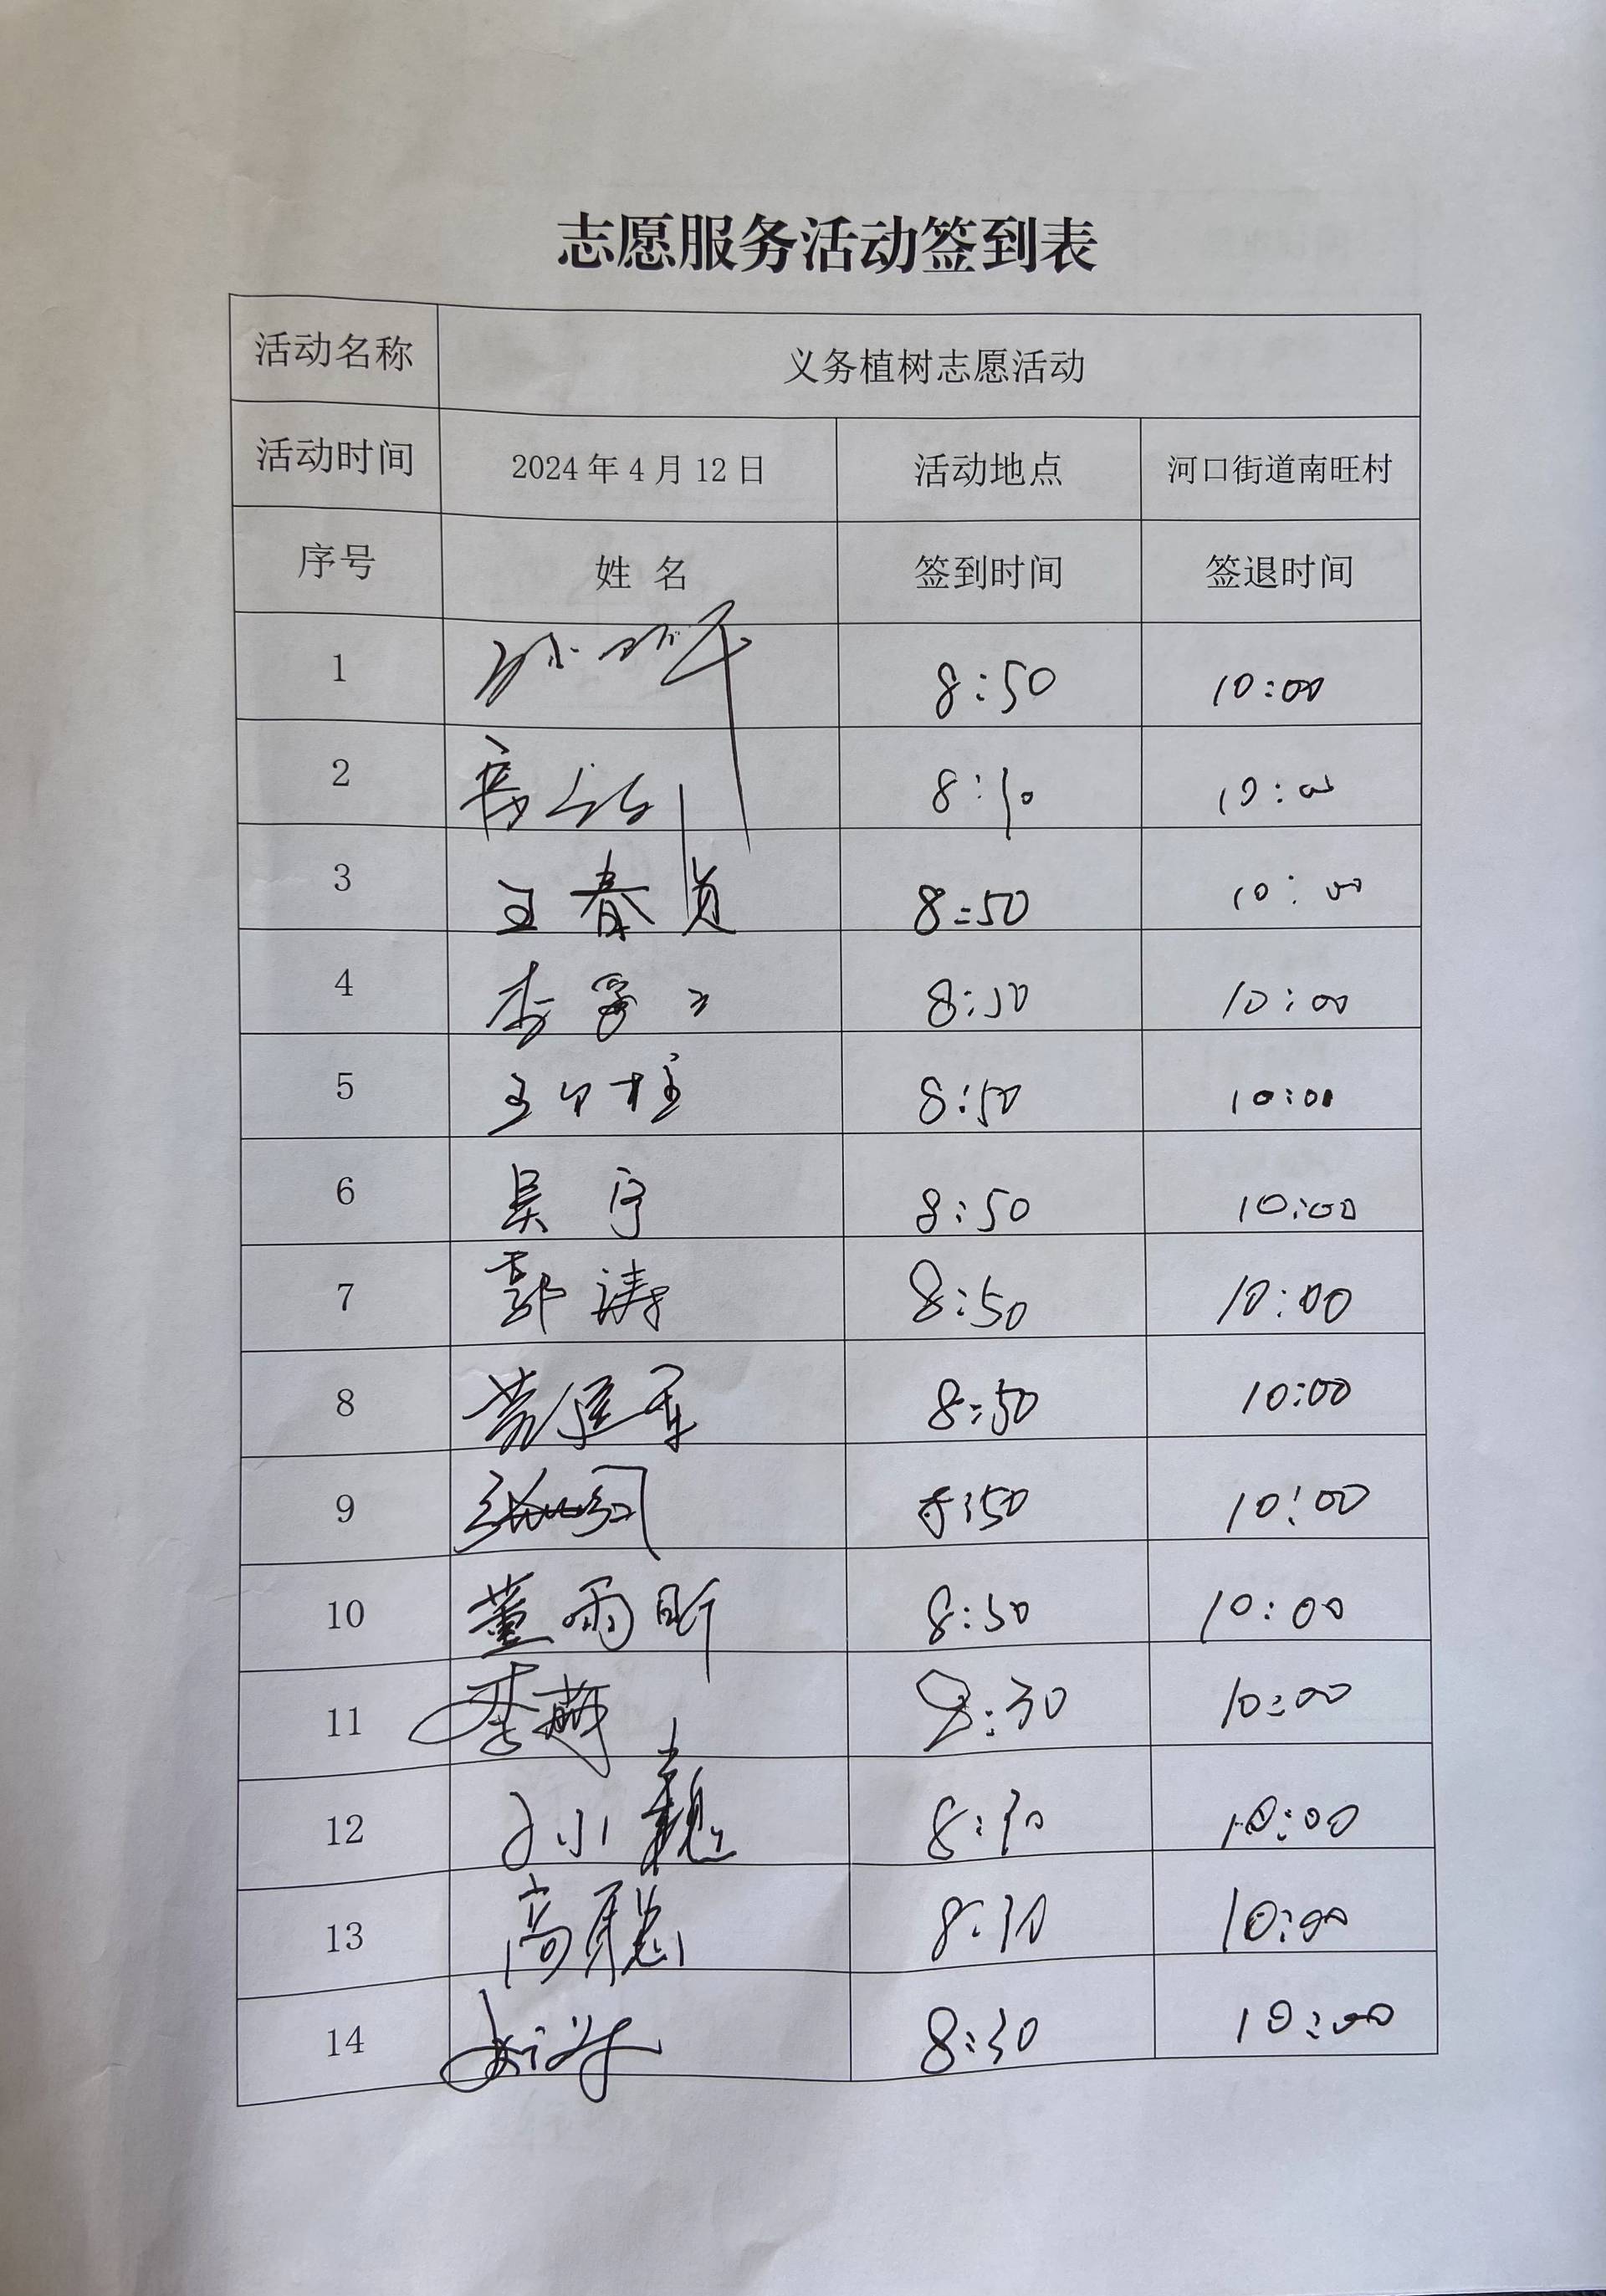 志愿服务活动签到表
活动名称 义务植树志愿活动
活动时间 2024年4月12日 活动地点 河口街道南旺村
序号 姓 名 签到时间 签退时间
1 8:50 10:00
2 10:00
3 王春贞 8:50 10:00
4 李 8:50 10:00
5 王 柱 8:50 10:00
6 吴宁 8:50 10:00
7 郭涛 8:50 10:00
8 8:50 10:00
9 8:50 10:00
10 董雨昕 8:50 10:00
11 李 8:30 10:00
12 孙小 10:00
13 高聪 10:00
14 8:30 10:00